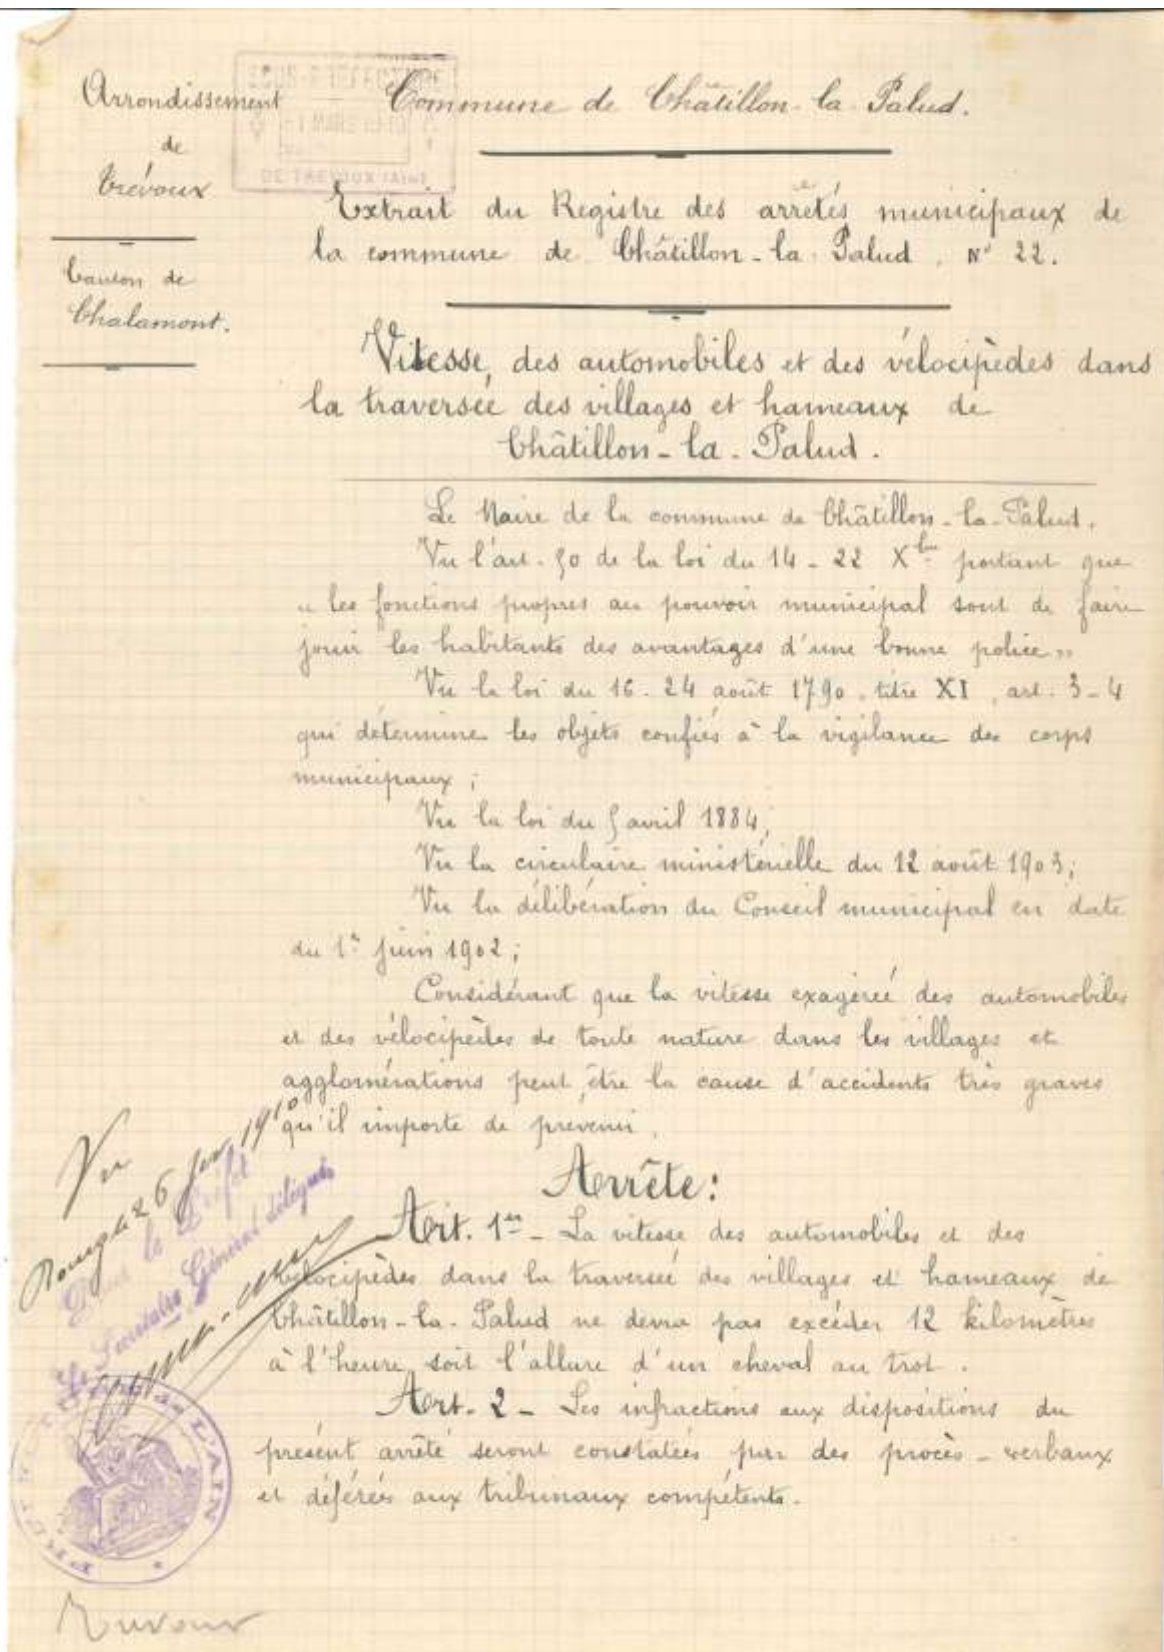 Arrondissement
de
Trévoux
Canton de
Chalamont.
SOUS-PREFECTURE
1 MARS 1910
DE TREVOUX (AIN)
Commune de Châtillon-la-Palud.
Extrait du Registre des arrêtés municipaux de
la commune de Châtillon-la-Palud. N° 22.
Vitesse, des automobiles et des vélocipèdes dans
la traversée des villages et hameaux de
Châtillon-la-Palud.
Le Maire de la commune de Châtillon-la-Palud,
Vu l'art. 50 de la loi du 14-22 Xbre portant que
" les fonctions propres au pouvoir municipal sont de faire
jouir les habitants des avantages d'une bonne police "
Vu la loi du 16-24 août 1790, titre XI, art. 3-4
qui détermine les objets confiés à la vigilance des corps
municipaux ;
Vu la loi du 5 avril 1884;
Vu la circulaire ministérielle du 12 août 1903;
Vu la délibération du Conseil municipal en date
du 1er juin 1902;
Considérant que la vitesse exagérée des automobiles
et des vélocipèdes de toute nature dans les villages et
agglomérations peut être la cause d'accidents très graves
qu'il importe de prévenir.
Arrête:
Art. 1er - La vitesse des automobiles et des
vélocipèdes dans la traversée des villages et hameaux de
Châtillon-la-Palud ne devra pas excéder 12 kilomètres
à l'heure, soit l'allure d'un cheval au trot.
Art. 2 - Les infractions aux dispositions du
présent arrêté seront constatées par des procès-verbaux
et déférées aux tribunaux compétents.
Vu
Bourg le 26 1910
Pour le Préfet
Le Secrétaire Général délégué
PREFECTURE de L'AIN
Trévoux